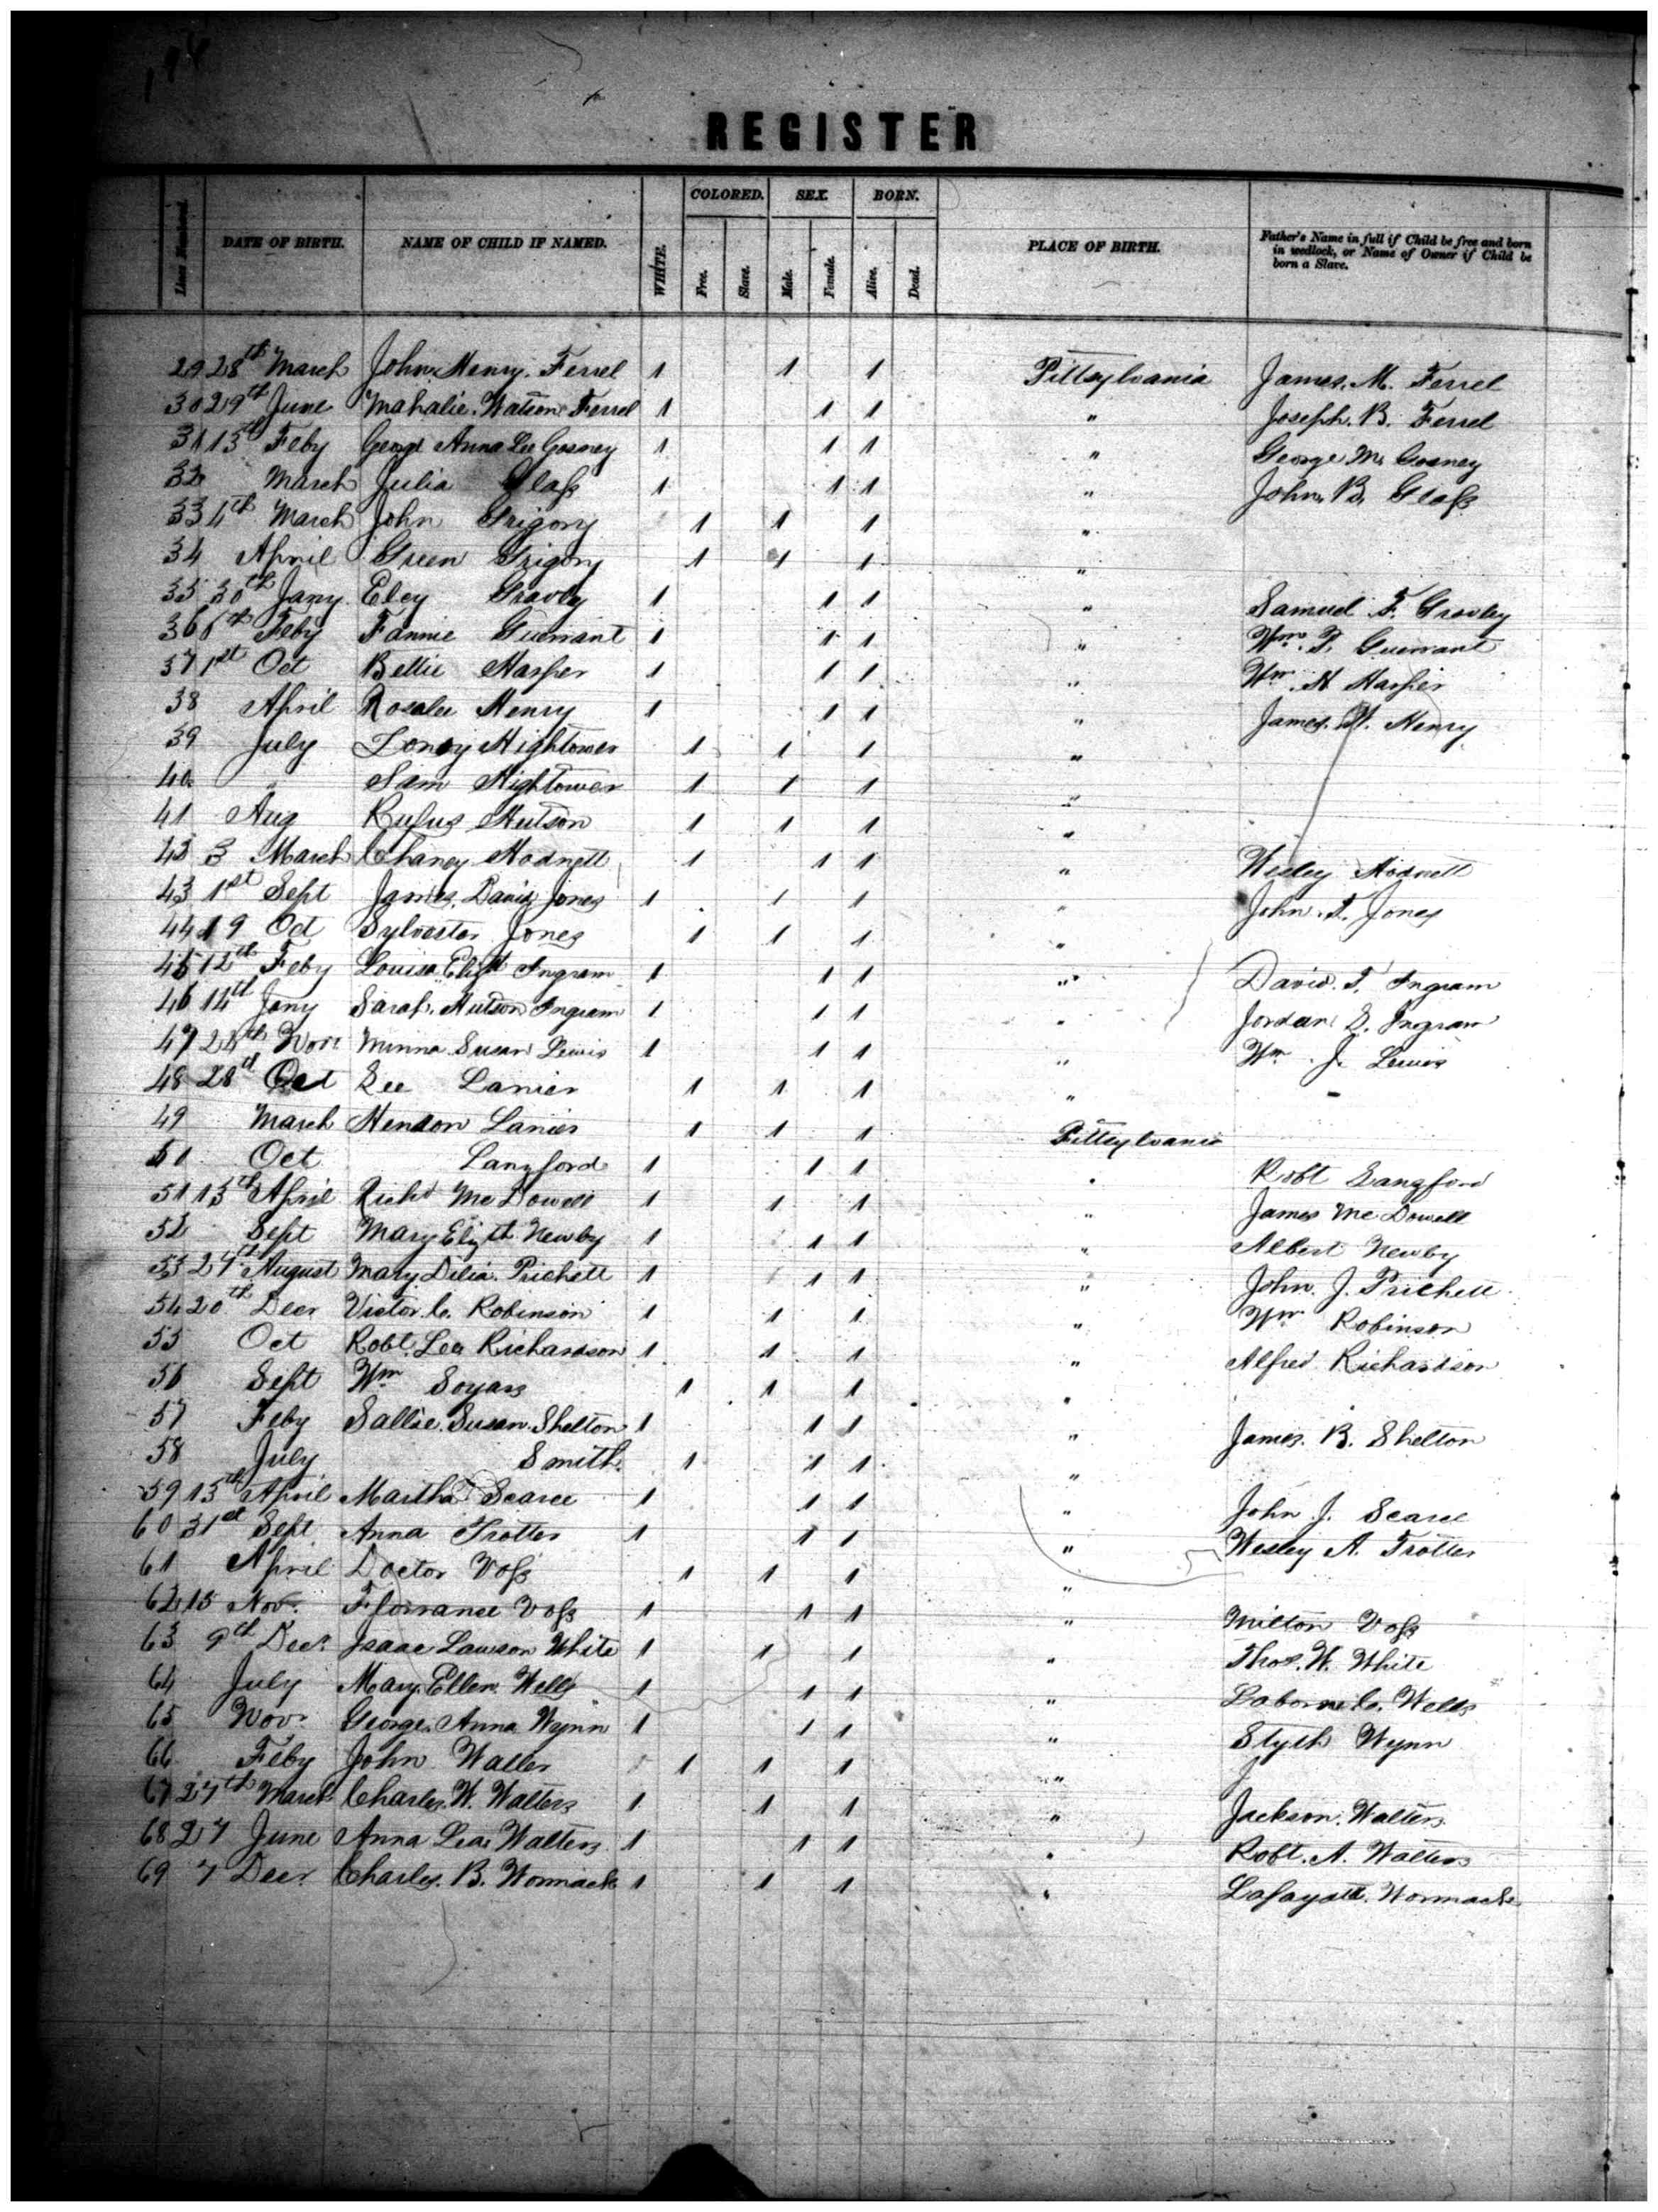 194
REGISTER
Lines Numbered. DATE OF BIRTH. NAME OF CHILD IF NAMED. WHITE. COLORED. Free. Slave. SEX. Male. Female. BORN. Alive. Dead. PLACE OF BIRTH. Father's Name in full if Child be free and born in wedlock, or Name of Owner if Child be born a Slave.
29 28th March John Henry Ferrel 1 1 1 Pittsylvania James. M. Ferrel
30 29th June Mahalie. Watson Ferrel 1 1 1 " Joseph. B. Ferrel
31 13th Feby George Anna Lee Gosney 1 1 1 " George M. Gosney
32 March Julia Glass 1 1 1 " John. B. Glass
33 4th March John Grigory 1 1 1 "
34 April Green Grigory 1 1 1 "
35 30th Jany Eley Gravly 1 1 1 " Samuel F. Gravley
36 6th Feby Fannie Guerrant 1 1 1 " Wm. T. Guerrant
37 1st Oct Bettie Harper 1 1 1 " Wm. H Harper
38 April Rosalee Henry 1 1 1 " James. W. Henry
39 July Hightower 1 1 1 "
40 " Sam Hightower 1 1 1 "
41 Aug Rufus Hutson 1 1 1 "
42 3 March Chaney Hodnett 1 1 1 " Wesley Hodnett
43 1st Sept James. David Jones 1 1 1 " John. T. Jones
44 19 Oct Sylvester Jones 1 1 1 "
45 12th Feby Louisa Elizt Ingram 1 1 1 " David. T. Ingram
46 14th Jany Sarah. Hutson Ingram 1 1 1 " Jordan S. Ingram
47 24th Novr Minna Susan Lewis 1 1 1 " Wm. J. Lewis
48 28th Oct Lee Lanier 1 1 1 "
49 March Henson Lanier 1 1 1 Pittsylvania
Oct Langford 1 1 1 " Robt Langford
51 13th April Richd McDowell 1 1 1 " James McDowell
52 Sept Mary Elizth Newby 1 1 1 " Albert Newby
53 27th August Mary. Delia. Prichett 1 1 1 " John. J. Prichett
54 20th Decr Victor. C. Robinson 1 1 1 " Wm Robinson
55 Oct Robt. Lee Richardson 1 1 1 " Alfred Richardson
56 Sept Wm Soyars 1 1 1 "
57 Feby Sallie. Susan. Shelton 1 1 1 " James. B. Shelton
58 July Smith. 1 1 1 "
59 13th April Martha Scarce 1 1 1 " John J. Scarce
60 31st Sept Anna Trotter 1 1 1 " Wesley A. Trotter
61 April Doctor Voss 1 1 1 "
62 15 Nov. Florrance Voss 1 1 1 " Milton Voss
63 9th Decr. Isaac Lawson White 1 1 1 " Thos. W. White
64 July Mary. Ellen. Wells 1 1 1 " Laborne C. Wells
65 Novr. George. Anna Wynn 1 1 1 " Styth Wynn
66 Feby John Waller 1 1 1 "
67 27th March Charles. W. Walters 1 1 1 " Jackson. Walters
68 27 June Anna Lea Walters 1 1 1 " Robt. A. Walters
69 7 Decr Charles. B. Wormack 1 1 1 " Lafayatt. Wormack